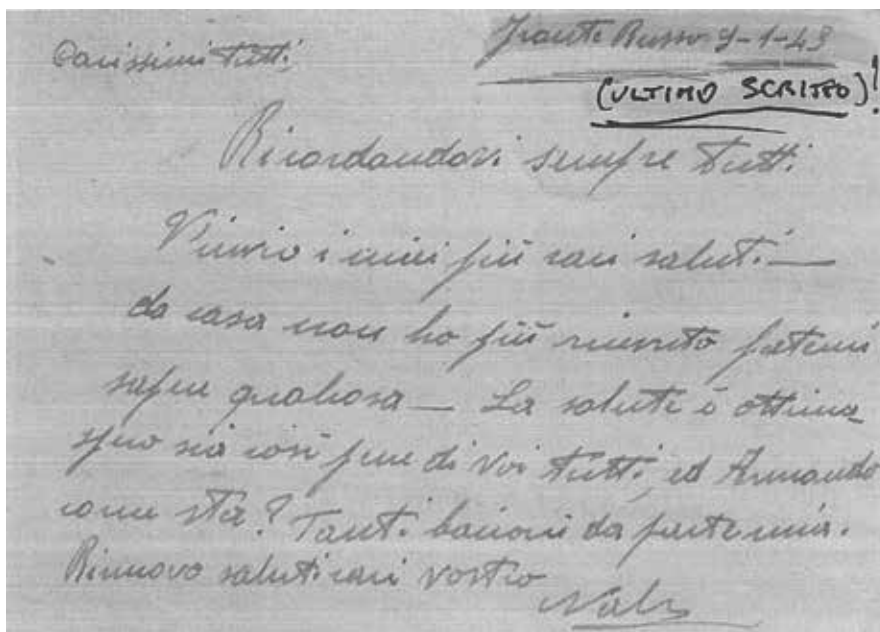 Fronte Russo 9-1-43
Carissimi Tutti,
(ULTIMO SCRITTO)!
Ricordandovi sempre Tutti
V'invio i miei più cari saluti —
da casa non ho più ricevuto fatemi
sapere qualcosa — La salute è ottima
spero sia così pure di voi Tutti, ed Armando
come sta? Tanti bacioni da parte mia.
Rinnovo saluti cari vostro